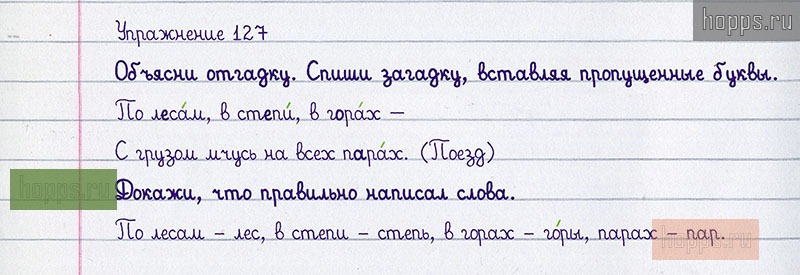 hopps.ru
Упражнение 127
Объясни отгадку. Спиши загадку, вставляя пропущенные буквы.
По леса́м, в степи́, в гора́х –
С грузом мчусь на всех пара́х. (Поезд)
hopps.ru
Докажи, что правильно написал слова.
По лесам – лес, в степи – степь, в горах – го́ры, парах – пар.
hopps.ru